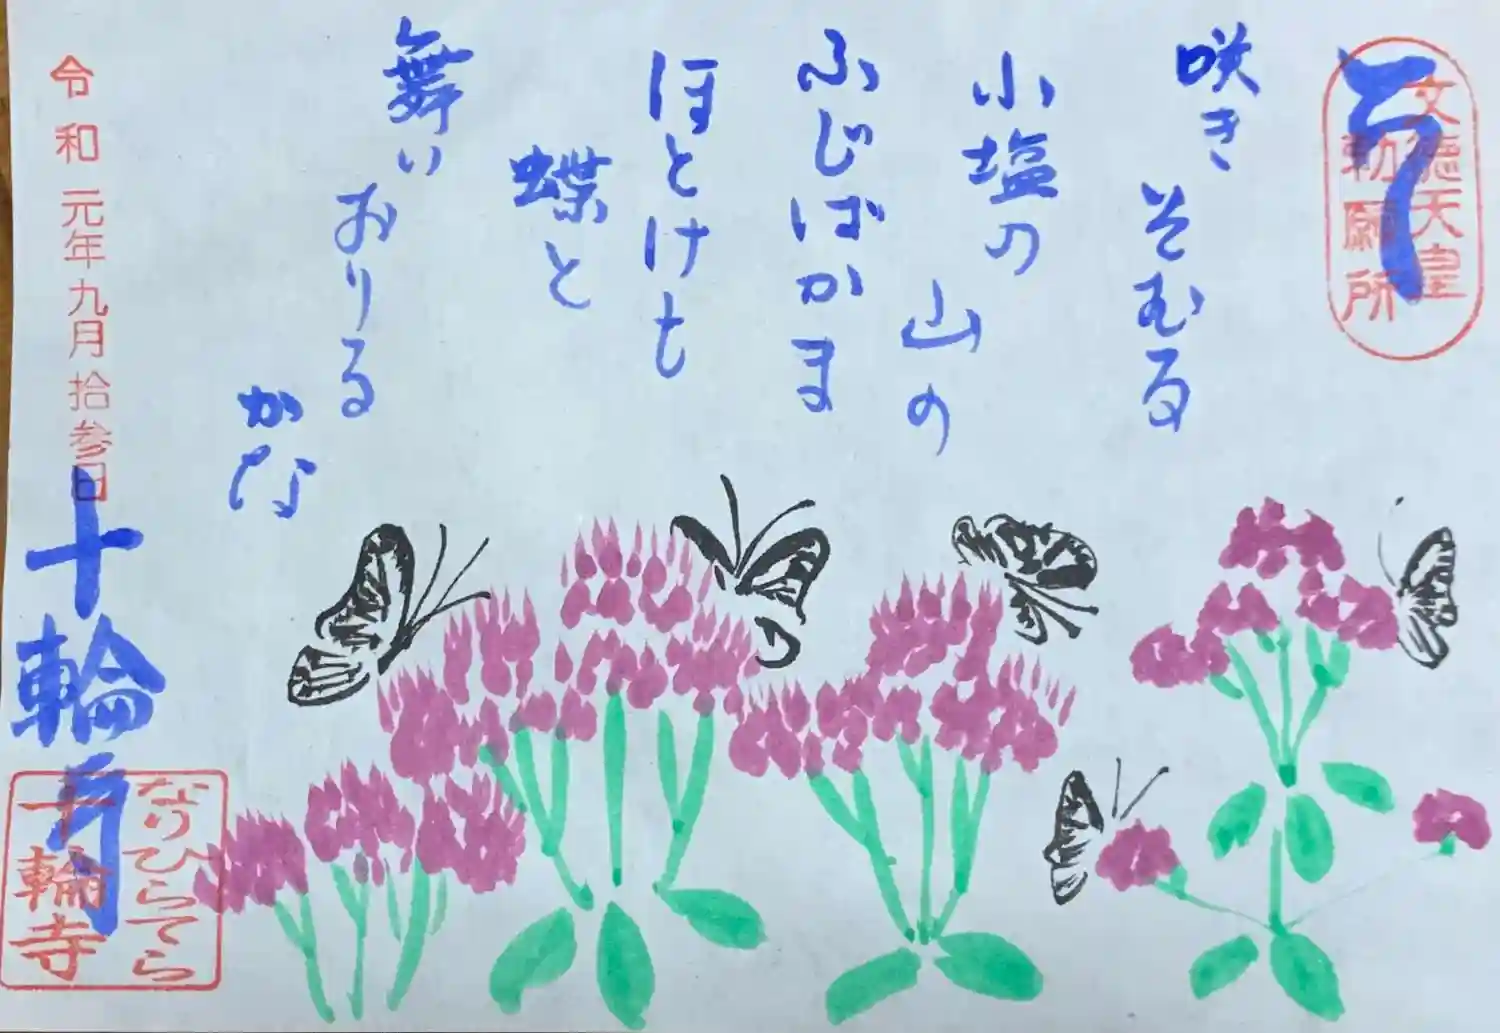 文徳天皇
勅願所
咲き
そむる
小塩の
山の
ふじばかま
ほとけも
蝶と
舞い
おりる
かな
令和元年九月拾参日
十輪寺
なりひらてら
十輪寺